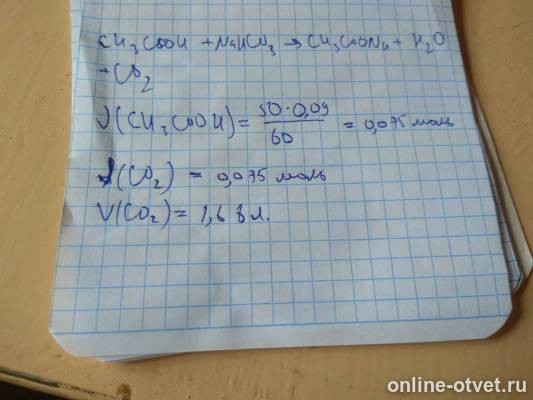 CH₃COOH + NaHCO₃ → CH₃COONa + H₂O
+ CO₂
ν(CH₃COOH) = 50·0,09 / 60 = 0,075 моль
ν(CO₂) = 0,075 моль
V(CO₂) = 1,68 л.
online-otvet.ru